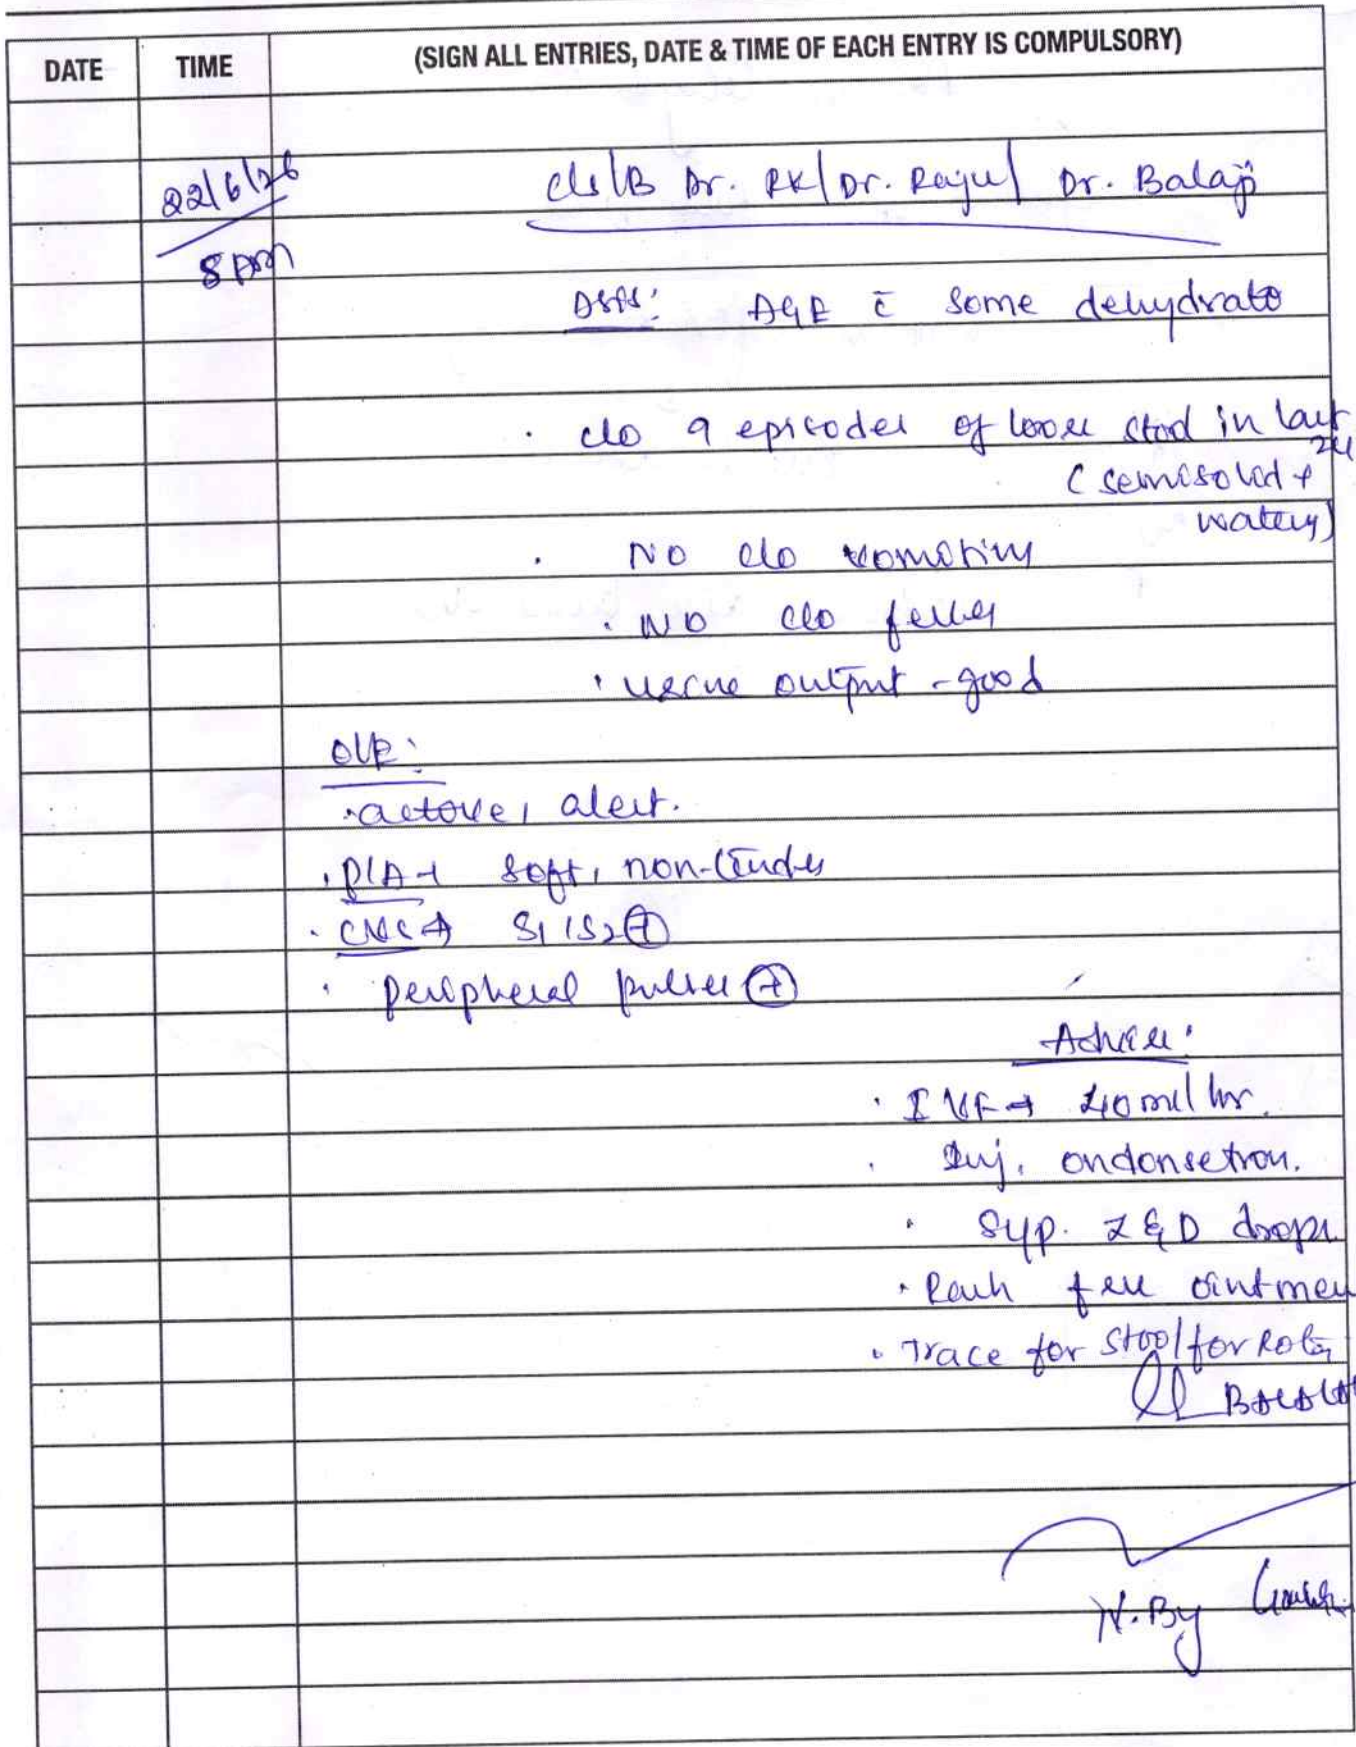 DATE TIME (SIGN ALL ENTRIES, DATE & TIME OF EACH ENTRY IS COMPULSORY)
22/6/26 c/s/B Dr. RK/Dr. Raju/ Dr. Balaji
8 pm
AGE c̄ some dehydratο
· c/o 9 episodes of loose stool in last
24
(semisolid +
watery)
· NO c/o vomoting
· NO c/o fever
· urine output - good
O/E:
· active, alert.
· P/A → soft, non-tender
· CVS → S1 S2 ⊕
· peripheral pulses ⊕
Advice:
· IVF → 40ml/hr.
· Inj. ondonsetron.
· Syp. Z&D drops
· Rash free ointmen
· Trace for stool/for Rota
N. By